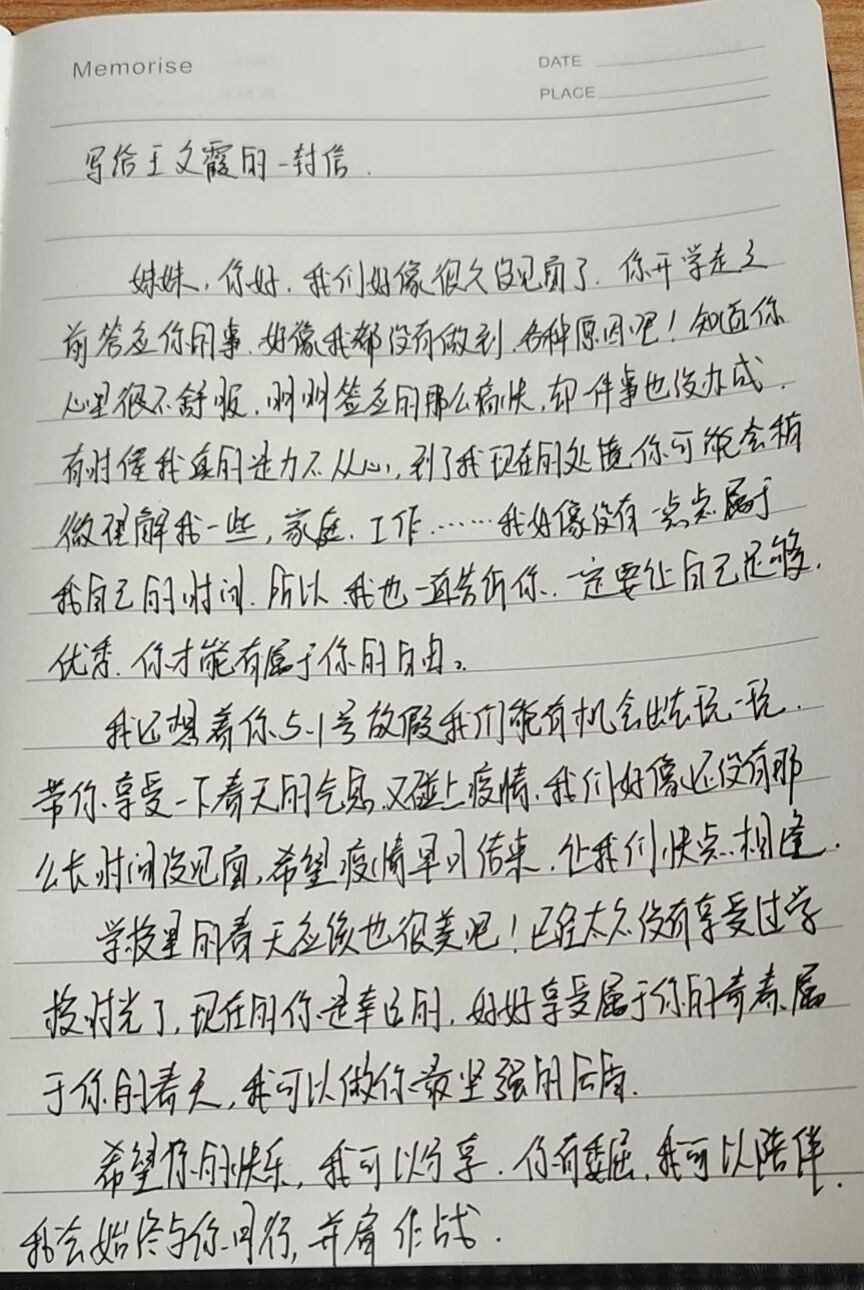 Memorise
DATE
PLACE
写给王文霞的一封信.
妹妹,你好,我们好像很久没见面了.你开学走之
前答应你的事.好像我都没有做到.各种原因吧!知道你
心里很不舒服.明明答应的那么痛快,却一件事也没办成.
有时候我真的是力不从心,到了我现在的处境你可能会稍
微理解我一些,家庭.工作……我好像没有一点点属于
我自己的时间.所以.我也一直告诉你.一定要让自己足够.
优秀.你才能有属于你的自由。
我还想着你5.1号放假我们能有机会出去玩一玩.
带你享受一下春天的气息.又碰上疫情.我们好像还没有那
么长时间没见面,希望疫情早日结束.让我们快点相逢.
学校里的春天应该也很美吧!已经太久没有享受过学
校时光了,现在的你是幸福的.好好享受属于你的青春.属
于你的春天,我可以做你最坚强的后盾.
希望你的快乐,我可以分享.你有委屈,我可以陪伴.
我会始终与你同行,并肩作战.